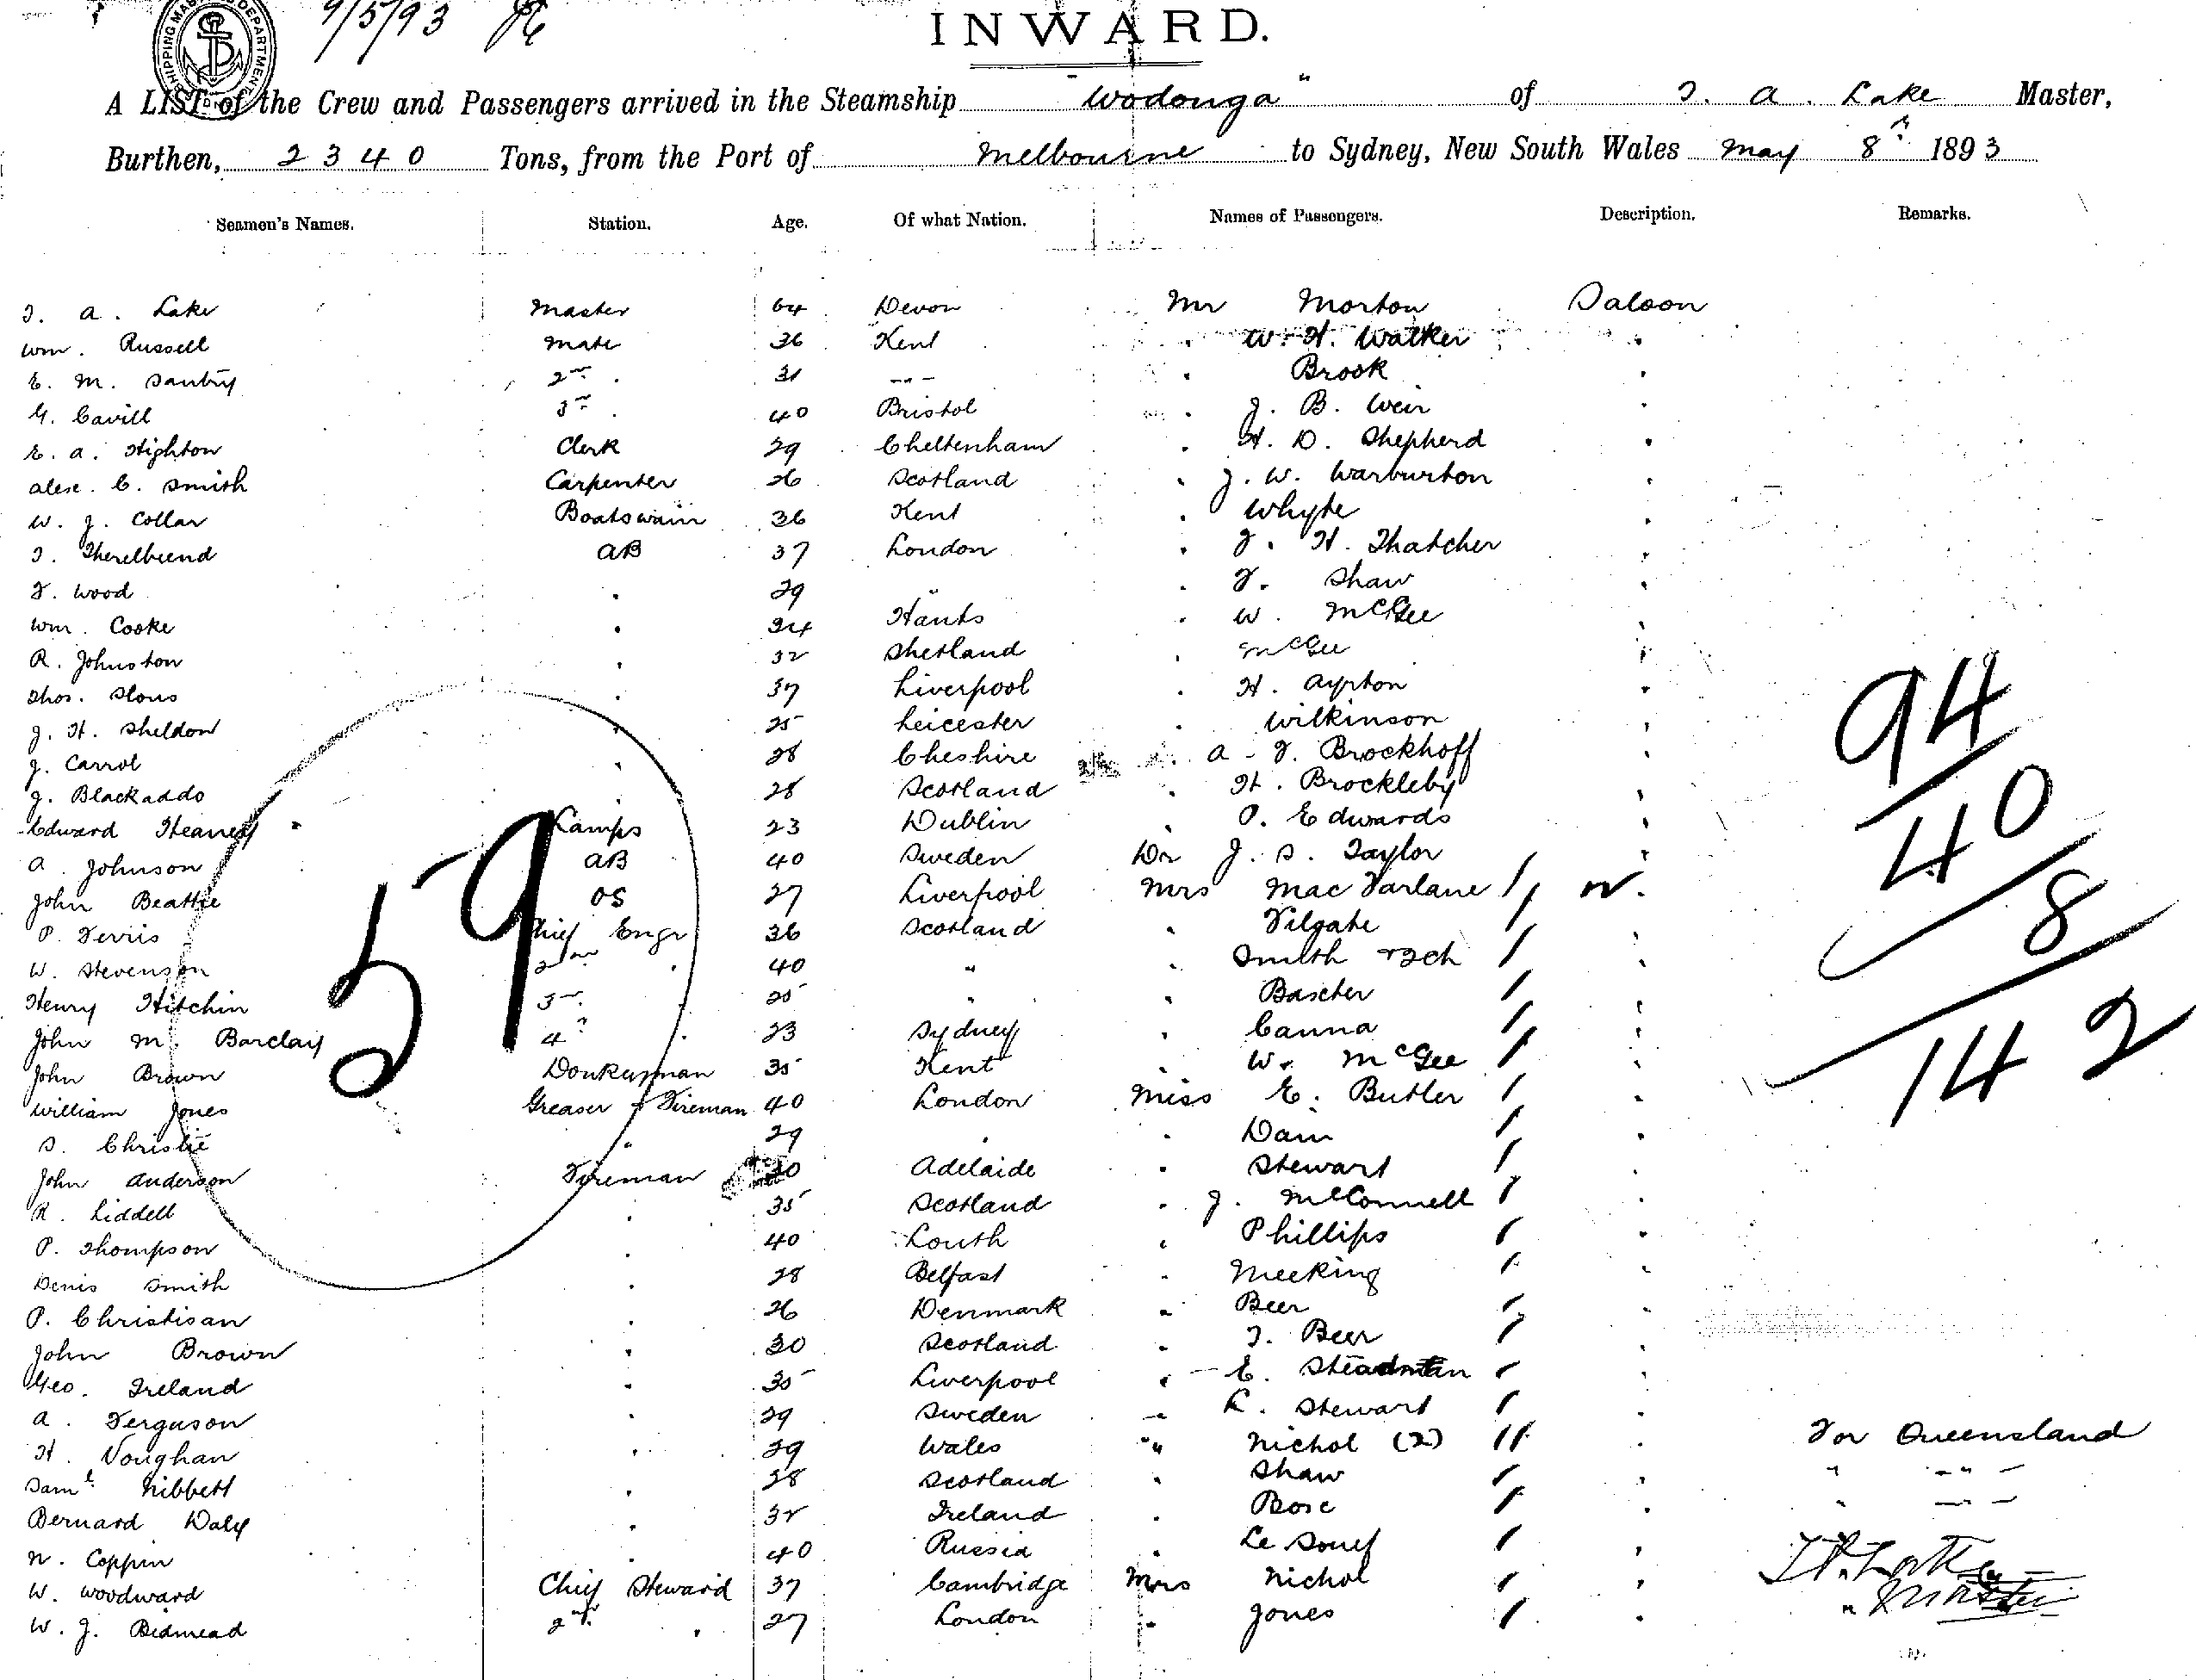 SHIPPING MASTER'S DEPARTMENT
9/5/93
INWARD.
A LIST of the Crew and Passengers arrived in the Steamship "Wodonga" of T. A. Lake Master,
Burthen, 2340 Tons, from the Port of Melbourne to Sydney, New South Wales May 8th 1893
Seamen's Names. Station. Age. Of what Nation. Names of Passengers. Description. Remarks.
T. A. Lake Master 64 Devon Mr Morton Saloon
Wm. Russell Mate 36 Kent " W. H. Walker "
E. M. Santry 2nd " 31 -"- " Brook "
G. Cavill 3rd " 40 Bristol " J. B. Weir "
E. A. Highton Clerk 29 Cheltenham " H. D. Shepherd "
Alex. C. Smith Carpenter 26 Scotland " J. W. Warburton "
W. J. Collar Boatswain 36 Kent " Whyte "
T. AB 37 London " J. H. Thatcher "
F. Wood " 29 " " F. Shaw "
Wm. Cooke " 34 Hants " W. McGee "
R. Johnston " 32 Shetland " McGee "
Thos. Slous " 37 Liverpool " H. Ayrton "
J. H. Sheldon " 25 Leicester " Wilkinson "
J. Carrol " 28 Cheshire " A. F. Brockhoff "
J. Blackaddo " 28 Scotland " H. Brockleby "
Edward Heaney Lamps 23 Dublin " O. Edwards "
A. Johnson AB 40 Sweden Dr J. S. Taylor "
John Beattie OS 27 Liverpool Mrs MacFarlane //
P. Ferris Chief Engr 36 Scotland " Filgate / "
W. Stevenson 2nd " 40 " " Smith + 2ch / "
Henry Hitchin 3rd " 25 " " Bascher / "
John M. Barclay 4th " 23 Sydney " Canna / "
John Brown Donkeyman 35 Kent " W. McGee / "
William Jones Greaser & Fireman 40 London Miss E. Butler / "
S. Christie " 29 " " Dain / "
John Anderson Fireman 30 Adelaide " Stewart / "
R. Liddell " 35 Scotland " J. McConnell / "
P. Thompson " 40 Louth " Phillips / "
Denis Smith " 28 Belfast " Meeking / "
P. Christisan " 26 Denmark " Beer / "
John Brown " 30 Scotland " T. Beer / "
Geo. Ireland " 35 Liverpool " E. Steadman / "
A. Ferguson " 29 Sweden " L. Stewart / "
H. Voughan " 39 Wales " Nichol (2) // " For Queensland
Saml. Nibbett " 38 Scotland " Shaw / " " -"-
Bernard Daly " 32 Ireland " Bose / " " -"-
N. Coppin " 40 Russia " Le Souef / "
W. Woodward Chief Steward 37 Cambridge Mrs Nichol / " T.A. Lake
W. J. Bidmead 2nd " 27 London " Jones / " Master
59
94
40
8
142